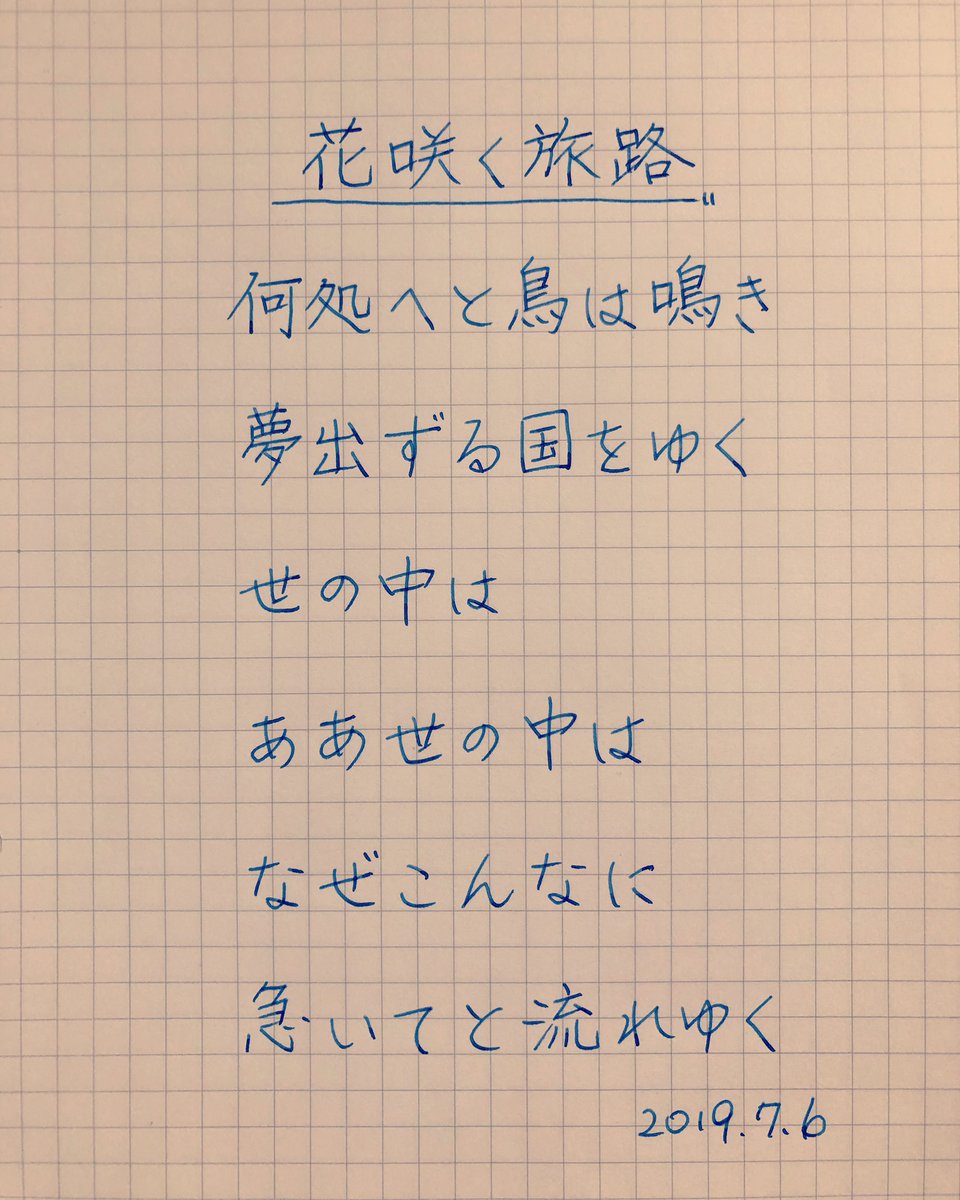 花咲く旅路
何処へと鳥は鳴き
夢出ずる国をゆく
世の中は
ああ世の中は
なぜこんなに
急いてと流れゆく
2019.7.6